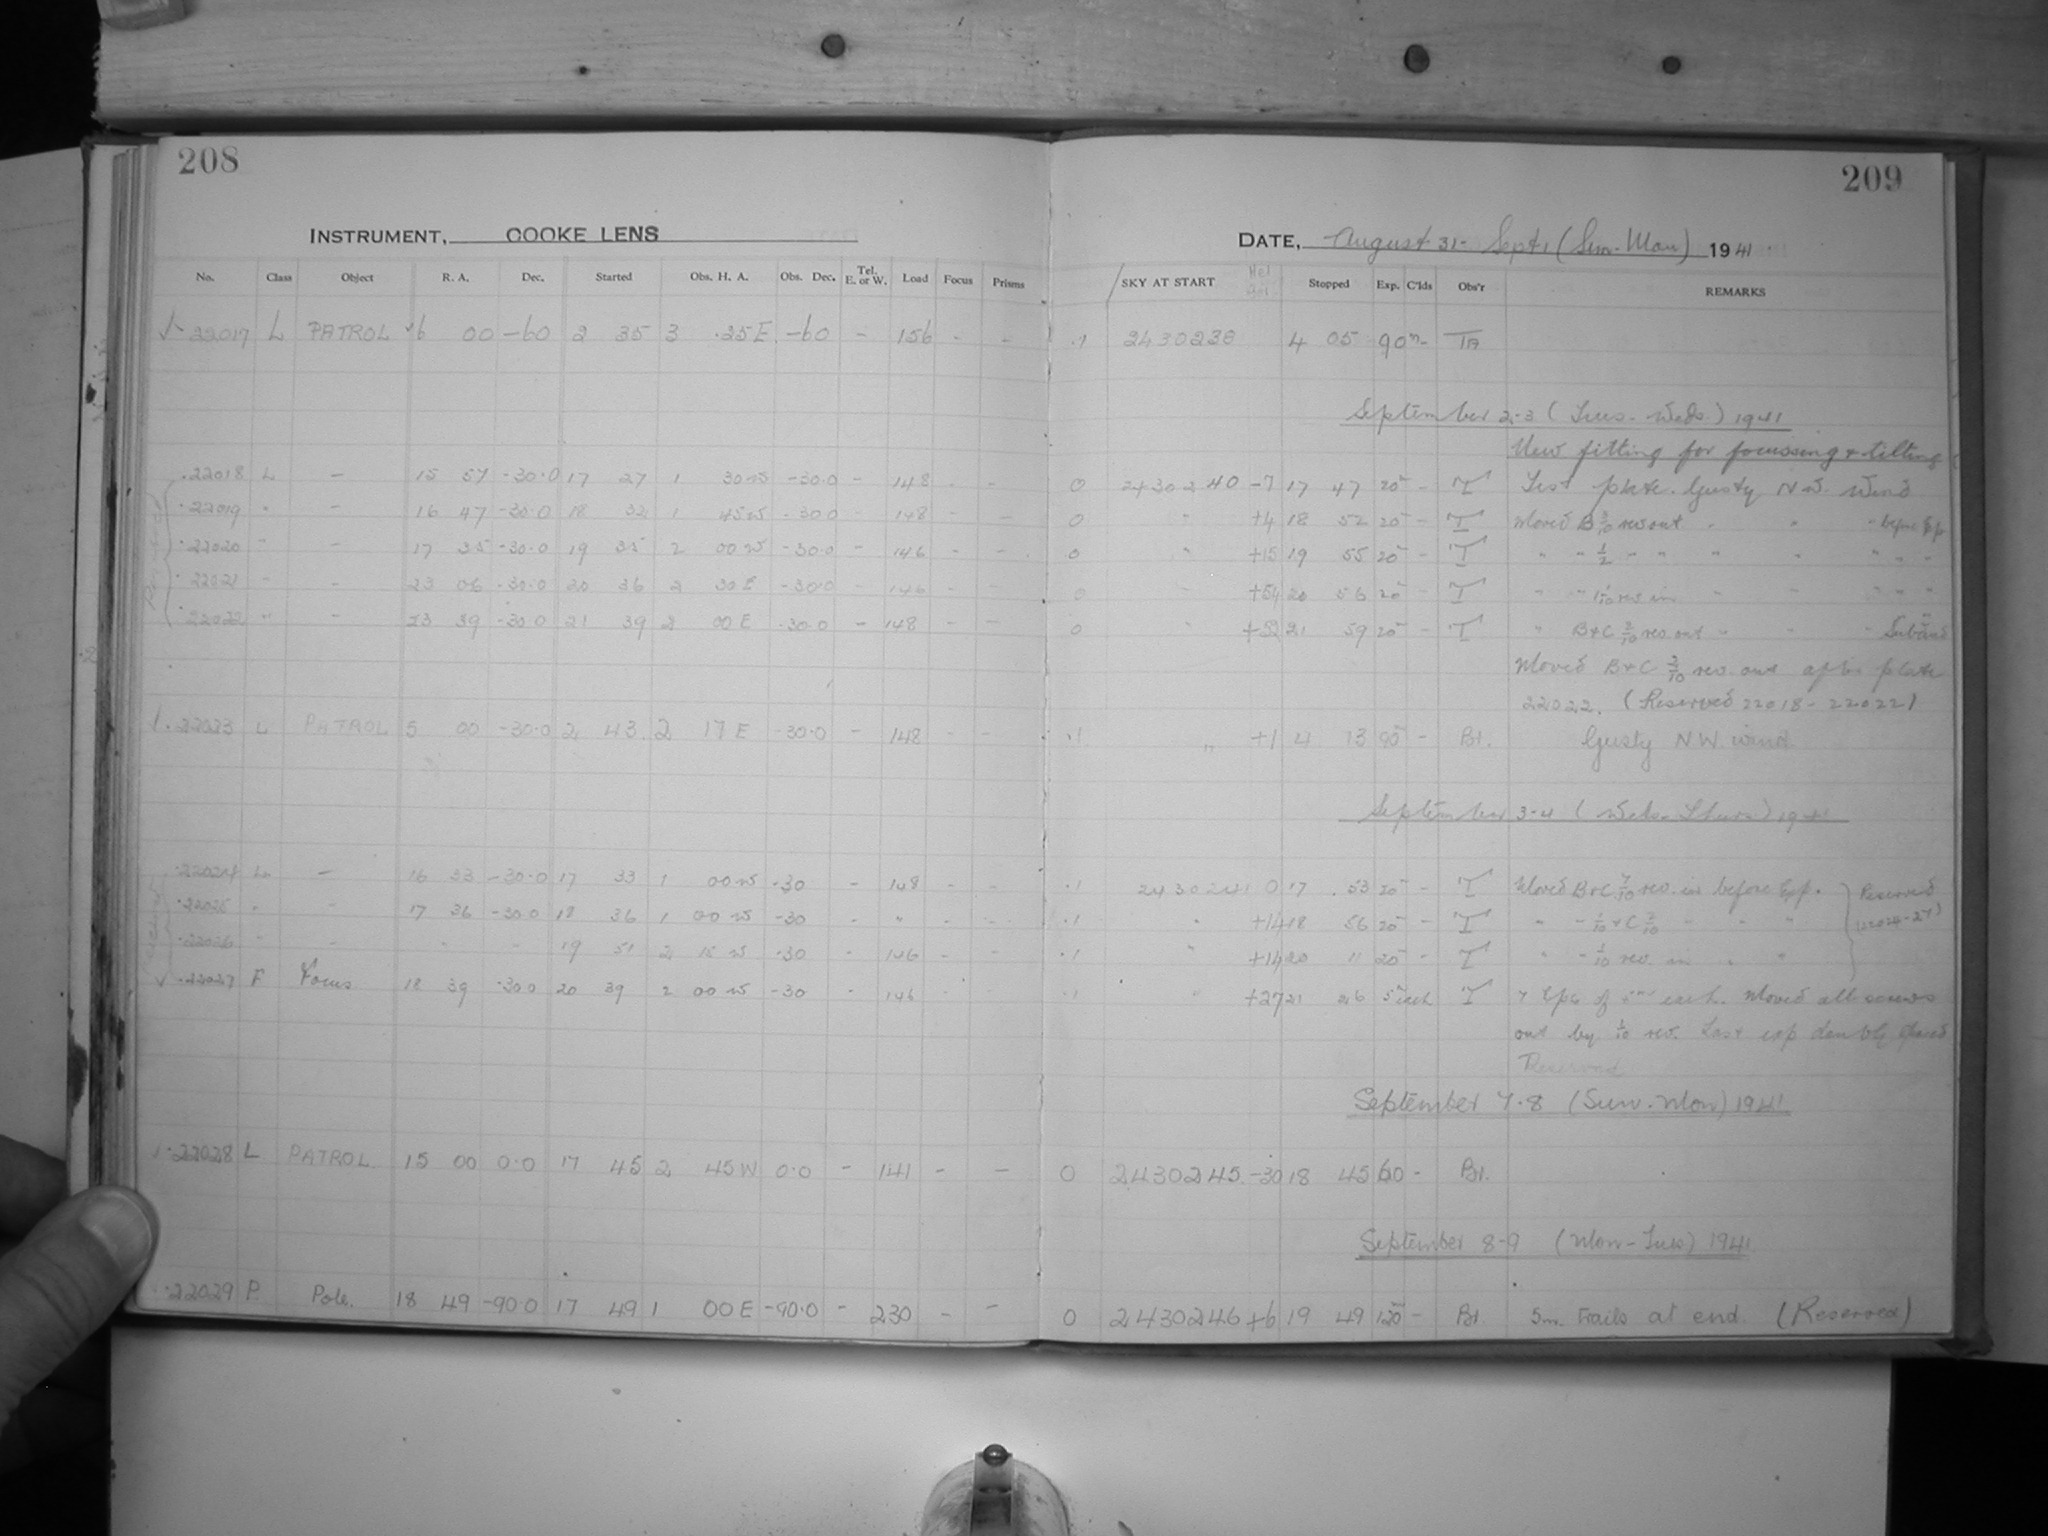 208
209
INSTRUMENT, COOKE LENS
DATE, August 31- Sept 1 (Sun-Mon) 1941
No. Class Object R. A. Dec. Started Obs. H. A. Obs. Dec. Tel. E. or W. Load Focus Prisms SKY AT START Stopped Exp. C'lds Obs'r REMARKS
22017 L PATROL 6 00 -60 2 35 3 .25E -60 - 156 - - .1 2430238 4 05 90m -
September 2-3 (Tues-Weds.) 1941
New fitting for focussing & tilting
.22018 L - 15 57 -30.0 17 27 1 30W -30.0 - 148 - - 0 2430240 -7 17 47 20m - T Test plate. Gusty N.W. Wind
.22019 " - 16 47 -30.0 18 32 1 45W -30.0 - 148 - - 0 " +4 18 52 20m - T Moved B 3/10 rev out " " " before Exp
.22020 " - 17 35 -30.0 19 35 2 00W -30.0 - 146 - - 0 " +15 19 55 20m - T " " 1/2 " " " " " " "
.22021 " - 23 06 -30.0 20 36 2 30E -30.0 - 146 - - 0 " +54 20 56 20m - T " " rev in " " " " "
.22022 " - 23 39 -30.0 21 39 2 00E -30.0 - 148 0 " +52 21 59 20m - T " B+C 3/10 rev. out " "
Moved B+C 3/10 rev. out after plate
22022. (Reserved 22018-22022)
.22023 L PATROL 5 00 -30.0 2 43 2 17E -30.0 - 148 - - .1 " +1 4 13 90m - Bt. Gusty NW wind
September 3-4 (Weds-Thurs) 1941
.22024 L - 16 33 -30.0 17 33 1 00W -30 - 148 - - .1 2430241 0 17 53 20m - T Moved B+C 7/10 rev. in before Exp. Reserved
.22025 " - 17 36 -30.0 18 36 1 00W -30 - " - - .1 " +14 18 56 20m - T " " 1/10 + C 2/10 " " " (22024-27)
.22026 " - " " 19 51 2 15W -30 - 146 - - .1 " +14 20 11 20m - T " " 1/10 rev. in " "
.22027 F Focus 18 39 -30.0 20 39 2 00W -30 - 146 - - .1 " +27 21 5m each T 7 Exps of 5m each. Moved all screws
out by 1/10 rev. Last exp doubly spaced
Reserved
September 7-8 (Sun-Mon) 1941
.22028 L PATROL 15 00 0.0 17 45 2 45W 0.0 - 141 - - 0 2430245 -30 18 45 60 - Bt.
September 8-9 (Mon-Tues) 1941
.22029 P. Pole. 18 49 -90.0 17 49 1 00E -90.0 - 230 - - 0 2430246 +6 19 49 120m - Bt. 5m. trails at end. (Reserved)